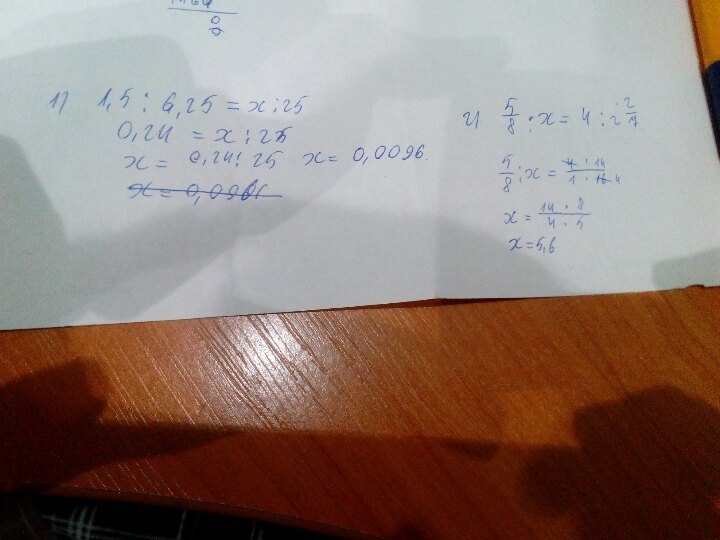 0
0
1) 1,5 : 6,25 = x : 25
0,24 = x : 25
x = 0,24 : 25 x = 0,0096.
x = 0,0096
2) 5/8 : x = 4 : 2 2/7
5/8 : x = 4 · 14 / 1 · 16 4
x = 14 · 8 / 4 · 5
x = 5,6